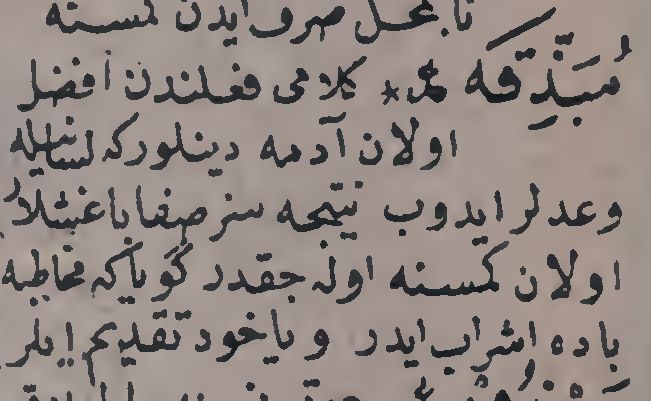 نابمحل صرف ایدن کمسنه
مُبَذِّقَه * کلامی فعلندن افضل
اولان آدمه دینلور که لسانیله
وعدلر ایدوب نتیجه سز صفا باغشلار
اولان کمسنه اوله جقدر گویا که مخاطبه
باده اشراب ایدر و یاخود تقدیم ایلر